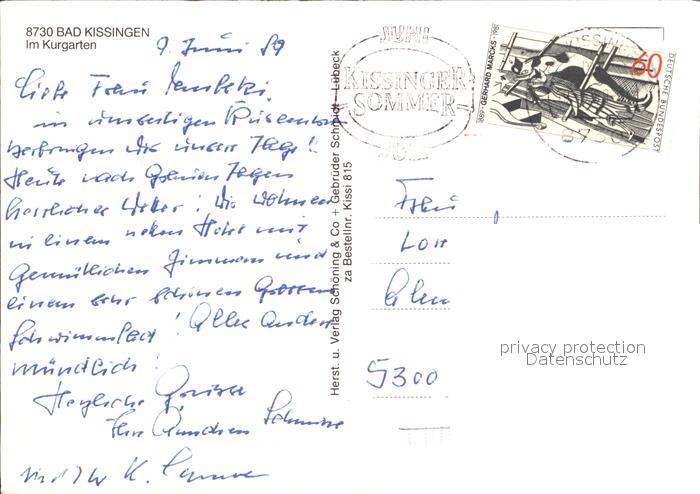 8730 BAD KISSINGEN
Im Kurgarten
9. Juni 89
Liebe Frau
im umseitigen
verbringen wir unsere Tage!
Heute nach Tagen
herrliches Wetter! Wir wohnen
in einem netten Hotel mit
Gemütlichen Zimmern und
einem sehr schönen
Schwimmbad! Alles andere
mündlich!
Herzliche Grüsse
Ihr
und Ihr K.
Herst. u. Verlag Schöning & Co + Gebrüder Schmidt - Lübeck
za Bestellnr. Kissi 815
JUNI
KISSINGER
SOMMER
JULI
1889-GERHARD MARCKS-1981
60
DEUTSCHE BUNDESPOST
Frau
5300
privacy protection
Datenschutz